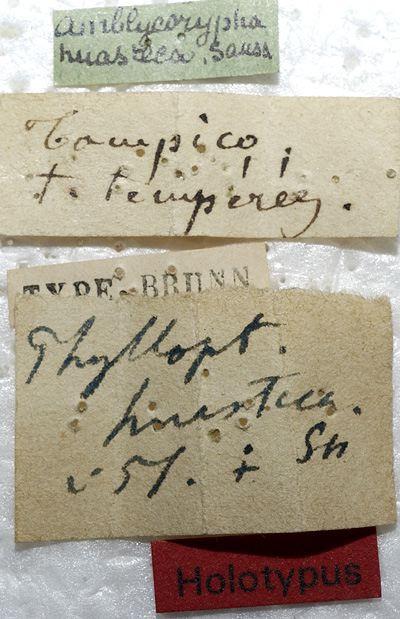 Amblycorypha
huasteca. Sauss
Tampico.
t. tempérée.
TYPE BRUNN
Phyllopt.
huasteca.
51. Sss
Holotypus